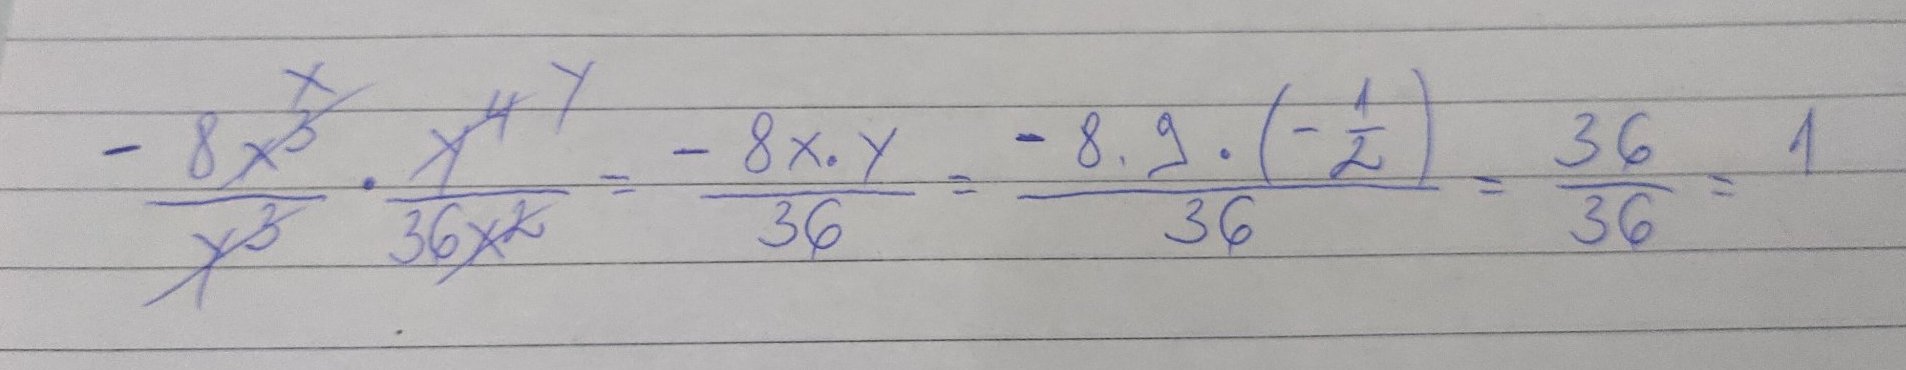 - 8x³/y³ · y⁴/36x² = - 8x·y/36 = - 8.9·(-1/2)/36 = 36/36 = 1
x y